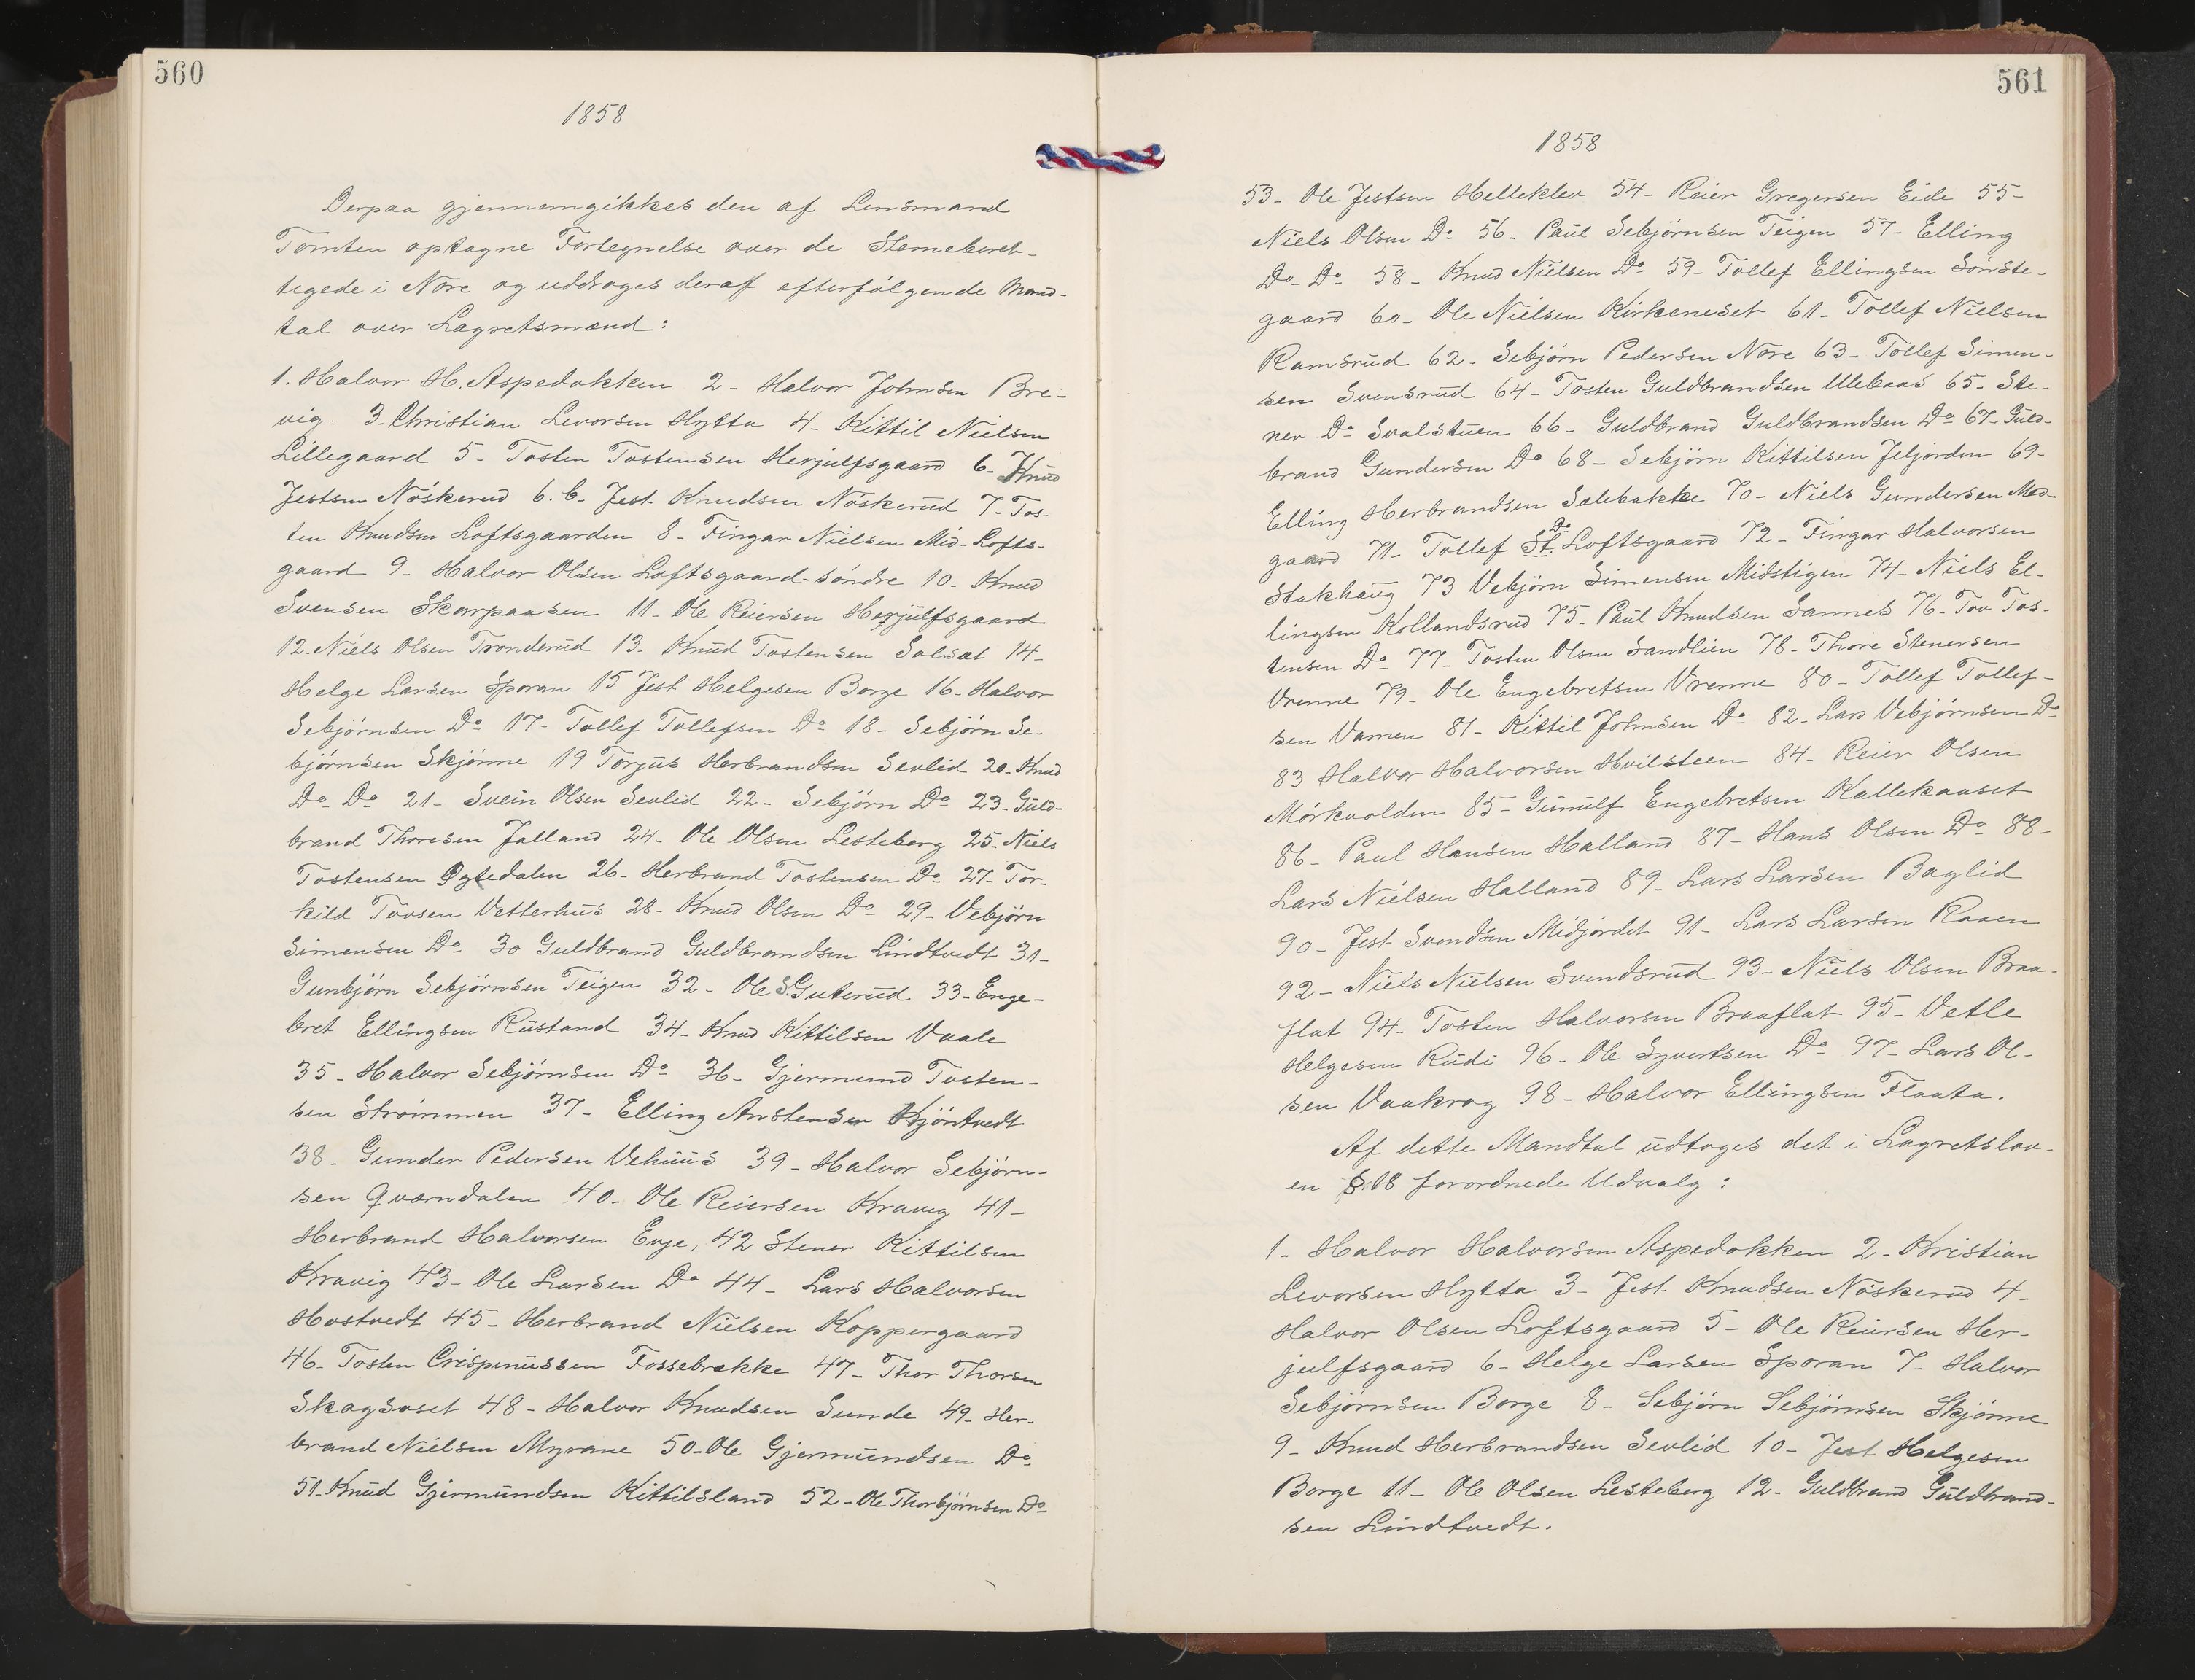 560
1858
Derpaa gjennemgikkes den af Lensmand
Tomten optagne Fortegnelse over de Stemeberet-
tigede i Nore og uddroges deraf efterfølgende Mand-
tal over Lagretsmænd:
1. Halvor H. Aspedokken 2- Halvor Johnsen Bre-
vig. 3. Christian Levorsen Hytta 4- Kittil Nielsen
Lillegaard 5- Tosten Tostensen Herjulfsgaard 6- Knud
Jestsen Nöskerud 6.b. Jest Knudsen Nöskerud 7- Tos-
ten Knudsen Loftsgaarden 8- Fingar Nielsen Mid-Lofts-
gaard 9- Halvor Olsen Loftsgaard-söndre 10- Knud
Svensen Skarpaasen 11- Ole Reiersen Herjulfsgaard
12- Niels Olsen Tronderud 13- Knud Tostensen Solsæt 14-
Helge Larsen Sporan 15 Jest Helgesen Borge 16- Halvor
Sebjörnsen Do 17- Tollef Tollefsen Do 18- Sebjörn Se-
björnsen Skjönne 19 Torjus Herbrandsen Sevlid 20- Knud
Do- Do 21- Svein Olsen Sevlid 22- Sebjörn Do 23- Guld-
brand Thoresen Jalland 24- Ole Olsen Lesteberg 25- Niels
Tostensen Ögtedalen 26- Herbrand Tostensen Do 27- Tor-
kild Tovsen Vetterhus 28- Knud Olsen Do 29- Vebjörn
Simensen Do 30 Guldbrand Guldbrandsen Lindtvedt 31-
Gunbjörn Sebjörnsen Teigen 32- Ole S. Guterud 33- Enge-
bret Ellingsen Rustand 34- Knud Kittilsen Vaale
35- Halvor Sebjörnsen Do 36- Gjermund Tosten-
sen Strömmen 37- Elling Anstensen Kjöntvedt
38- Gunder Pedersen Vehuus 39- Halvor Sebjörn-
sen Qværndalen 40- Ole Reiersen Kravig 41-
Herbrand Halvorsen Evje, 42 Stener Kittilsen
Kravig 43- Ole Larsen Do 44- Lars Halvorsen
Hvostvedt 45- Herbrand Nielsen Koppergaard
46- Tosten Crispinussen Fossebrekke 47- Thor Thorsen
Skagsoset 48- Halvor Knudsen Sunde 49- Her-
brand Nielsen Myrane 50- Ole Gjermundsen Do
51- Knud Gjermundsen Kittilsland 52- Ole Thorbjörnsen Do
561
1858
53- Ole Jestsen Helleklev 54- Reier Gregersen Eide 55-
Niels Olsen Do 56- Paul Sebjörnsen Teigen 57- Elling
Do- Do 58- Knud Nielsen Do 59- Tollef Ellingsen Sönste-
gaard 60- Ole Nielsen Kirkeneset 61- Tollef Nielsen
Ramsrud 62- Sebjörn Pedersen Nore 63- Tollef Simen-
sen Svensrud 64- Tosten Guldbrandsen Ulebaas 65- Ste-
ner Do Svalstuen 66- Guldbrand Guldbrandsen Do 67- Guld-
brand Gundersen Do 68- Sebjörn Kittilsen Jeljorden 69-
Elling Herbrandsen Solebakke 70- Niels Gundersen Med-
gaard 71- Tollef St. Do Loftsgaard 72- Fingar Halvorsen
Stakhaug 73 Vebjörn Simensen Midstigen 74- Niels El-
lingsen Kollandsrud 75- Paul Knudsen Sannes 76- Tov Tos-
tensen Do 77- Tosten Olsen Sandlien 78- Thore Stenersen
Vrenne 79- Ole Engebretsen Vrenne 80- Tollef Tollef-
sen Vamen 81- Kittil Johnsen Do 82- Lars Vebjörnsen Do
83 Halvor Halvorsen Hvilsteen 84- Reier Olsen
Mörkvolden 85- Gunulf Engebretsen Kallekaaset
86- Paul Hansen Halland 87- Hans Olsen Do 88-
Lars Nielsen Halland 89- Lars Larsen Baglid
90- Jest Svendsen Midjordet 91- Lars Larsen Raaen
92- Niels Nielsen Svendsrud 93- Niels Olsen Braa-
flat 94- Tosten Halvorsen Braaflat 95- Vetle
Helgesen Rudi 96- Ole Syvertsen Do 97- Lars Ol-
sen Vaakrog 98- Halvor Ellingsen Flaata.
Af dette Mandtal udtoges det i Lagretslov-
en §.18 forordnede Udvalg:
1- Halvor Halvorsen Aspedokken 2- Kristian
Levorsen Hytta 3- Jest Knudsen Nöskerud 4-
Halvor Olsen Loftsgaard 5- Ole Reiersen Her-
julfsgaard 6- Helge Larsen Sporan 7- Halvor
Sebjörnsen Borge 8- Sebjörn Sebjörnsen Skjönne
9- Knud Herbrandsen Sevlid 10- Jest Helgesen
Borge 11- Ole Olsen Lesteberg 12- Guldbrand Guldbrand-
sen Lindtvedt.